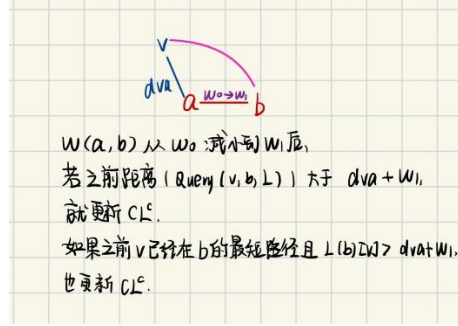 v
dva
a w₀→w₁ b
W(a,b) 从 w₀ 减小到 w₁后,
若之前距离 (Query(v,b,L)) 大于 dva+w₁,
就更新 CLᶜ.
如果之前v已经在b的最短路径且 L(b)[v]> dva+w₁,
也更新 CLᶜ.